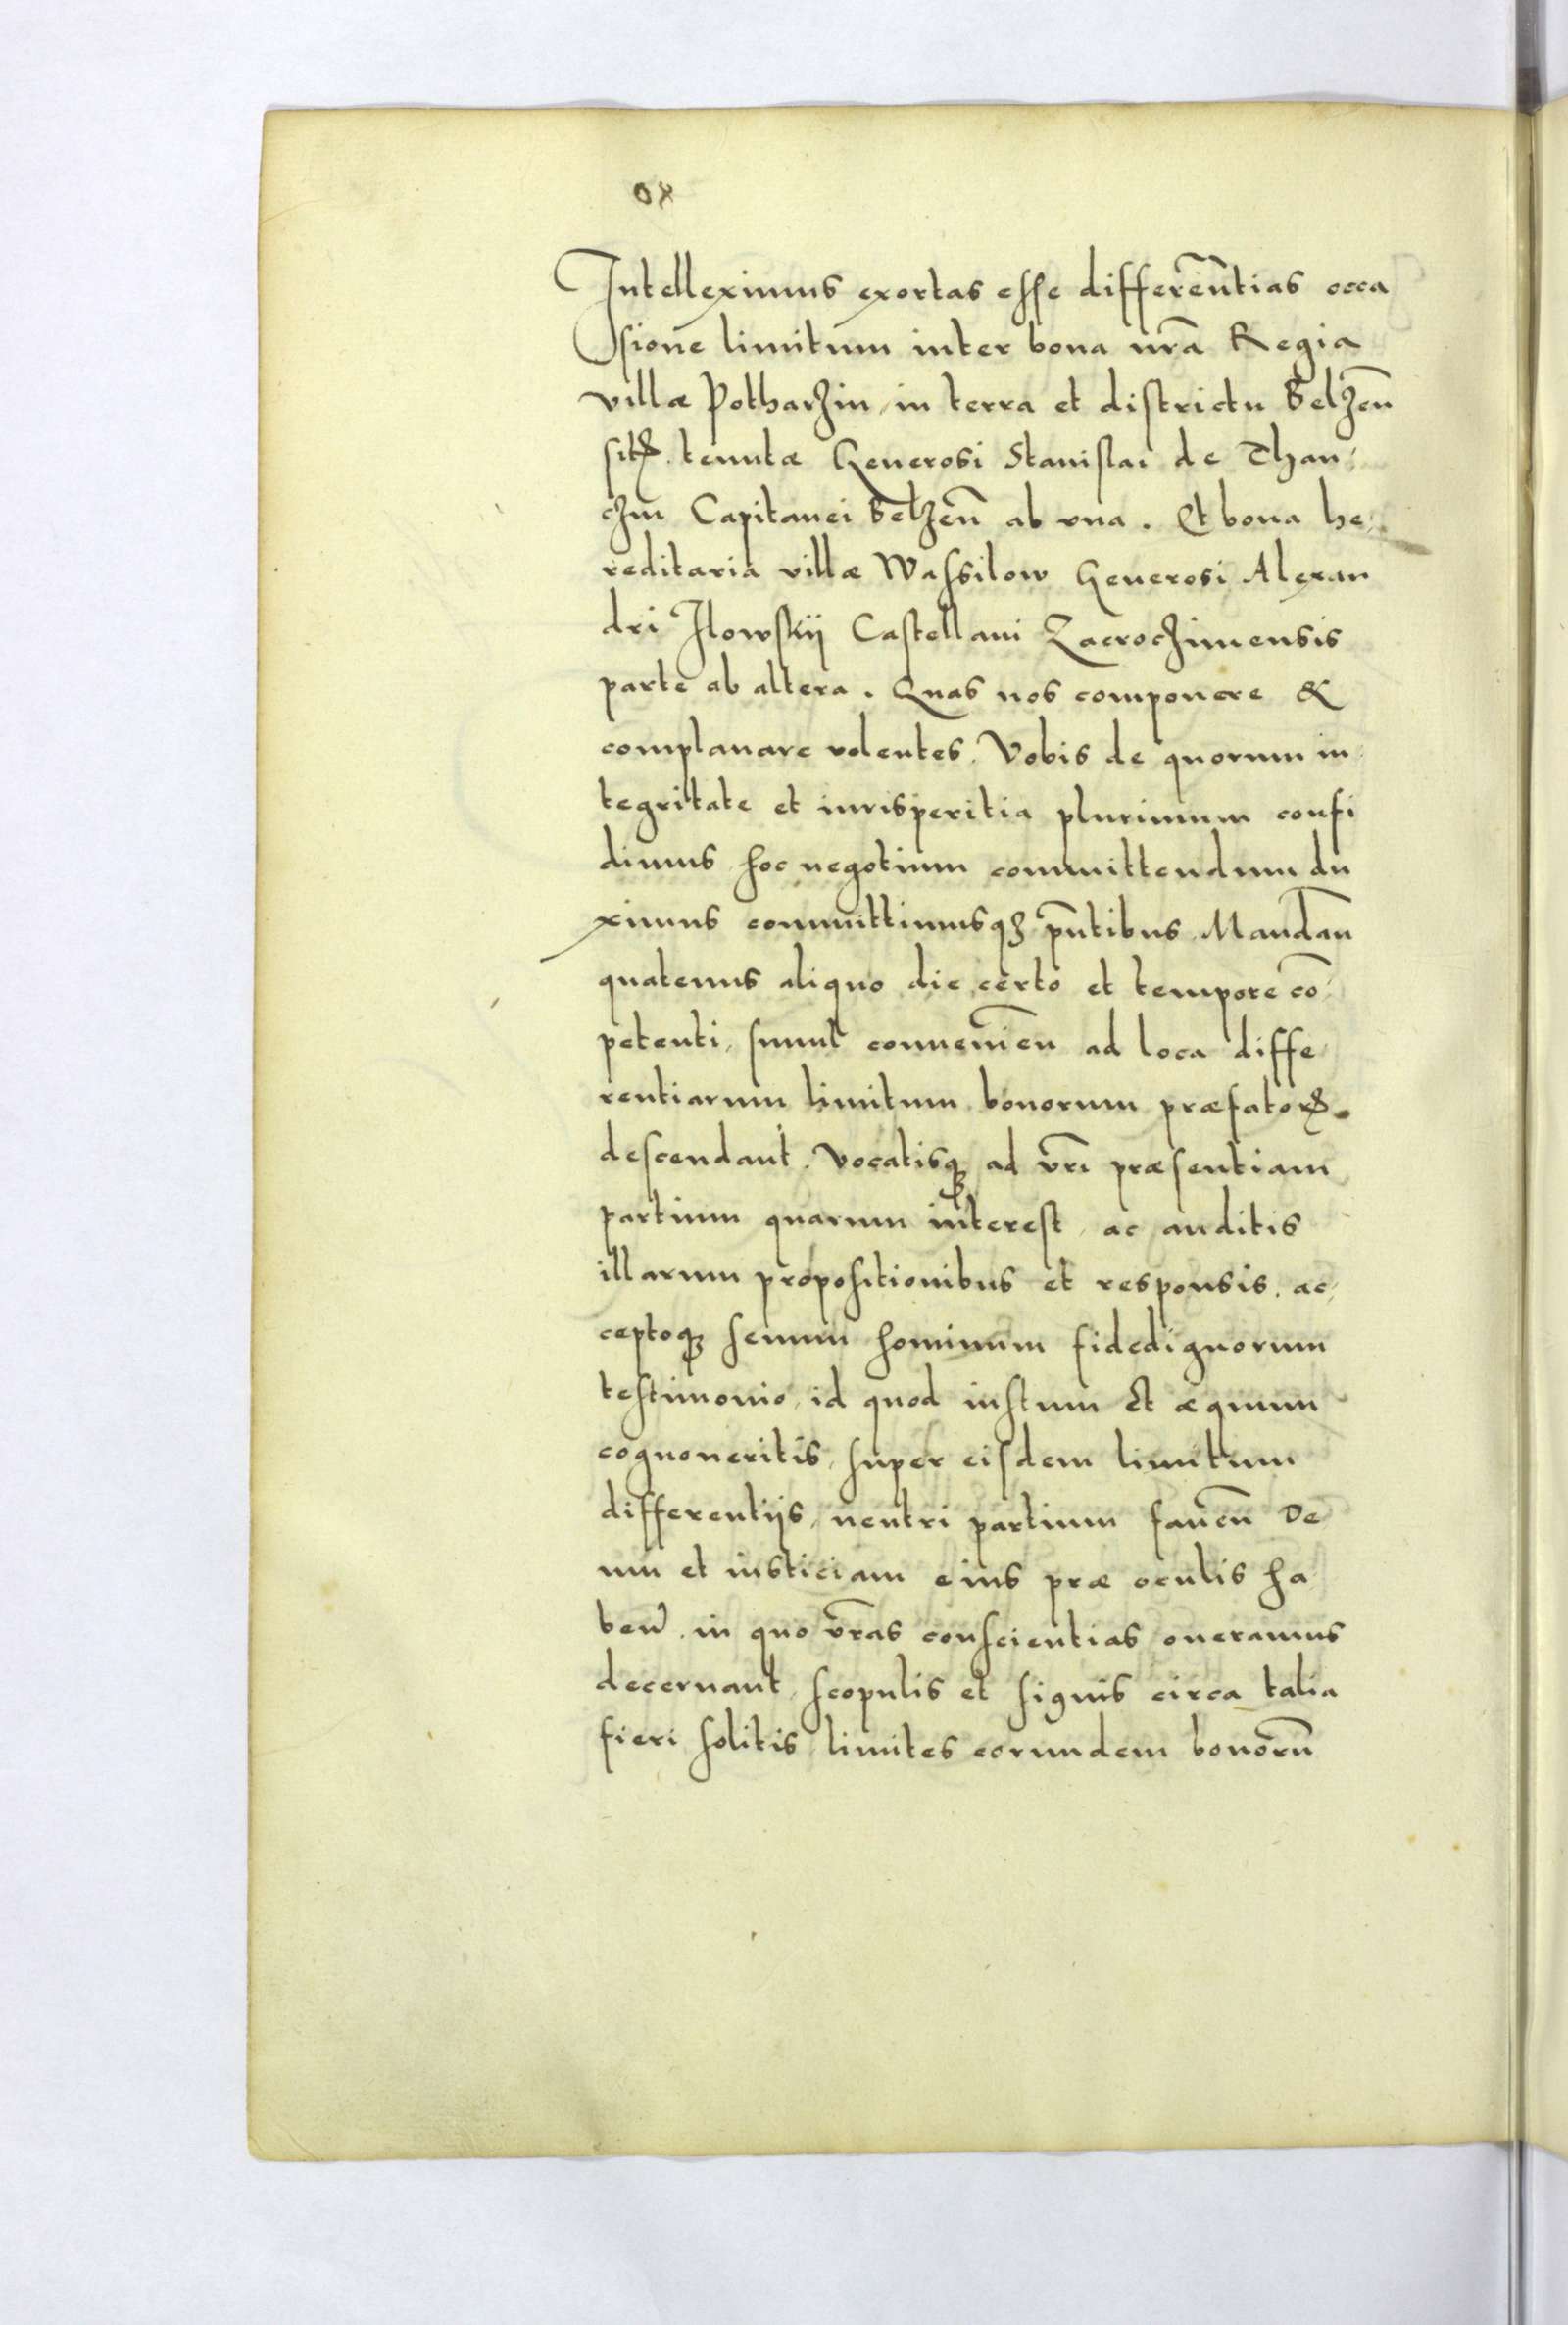 Intelleximus exortas esse differentias occa
sione limitum inter bona nr̃a Regia
villæ Potharzin, in terra et districtu Belzeñ
sitꝝ. tenutæ Generosi Stanislai de Than
czin Capitanei Belzeñ ab vna. Et bona he
reditaria villæ Wassilow Generosi Alexan
dri Ilowskij Castellani Zacroczimensis
parte ab altera. Quas nos componere &
complanare volentes. Vobis de quorum in
tegritate et iurisperitia plurimum confi
dimus hoc negotium committendum du
ximus committimusqꝫ pñtibus. Mandañ
quatenus aliquo die certo et tempore cõ
petenti, simul conuenieñ ad loca diffe
rentiarum limitum bonorum præfatorꝝ.
descendant. Vocatisqꝫ ad vr̃i præsentiam
partium quarum interest, ac auditis
illarum propositionibus et responsis. ac
ceptoqꝫ senum hominum fidedignorum
testimonio, id quod iustum et æquum
cognoueritis, super eisdem limitum
differentijs, neutri partium faueñ De
um et iusticiam eius præ oculis ha
beñ. in quo vr̃as conscientias oneramus
decernant, scopulis et signis circa talia
fieri solitis, limites eorundem bonorũ